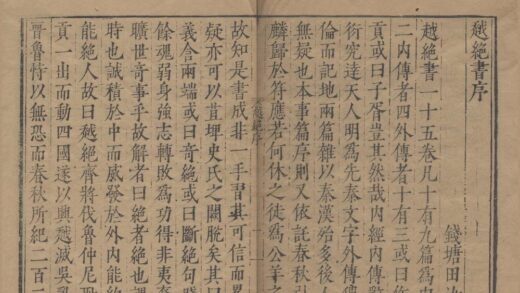 越絕書序
錢塘田
越絕書一十五卷凡十有九篇爲內
二內傳者四外傳者十有三或曰作
貢或曰子胥豈其然哉內經內傳辭
衍究達天人明爲先秦文字外傳
倫而記地兩篇雜以秦漢殆多後人
無疑也本事篇序則又依託春秋引
麟歸於符應若何休之徒爲公羊
越絕序
故知是書成非一手習其可信而
疑亦可以苴埤史氏之闕脫矣其曰
義含兩端或曰奇絕或曰斷絕句踐
餘魂弱身強志轉敗爲功得非夷
曠世奇事乎故解者曰絕者絕也
時也誠積於中而感發於外內能約
能絕人故曰越絕齊將伐魯仲尼恥
貢一出而動四國遂以興越滅吳
晉魯恃以無恐而春秋所紀二百